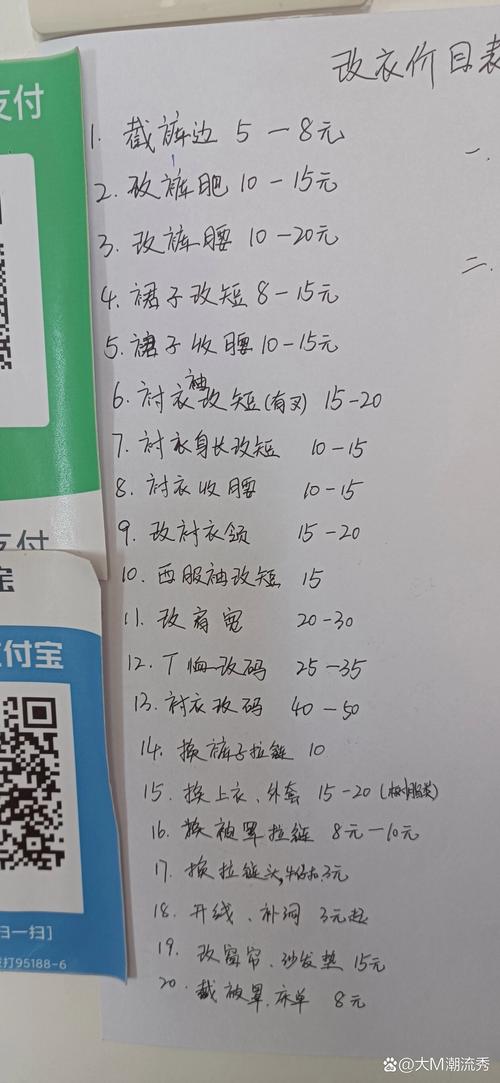 支付
改衣价目表
一.
二.
1. 截裤边 5-8元
2. 改裤肥 10-15元
3. 改裤腰 10-20元
4. 裙子改短 8-15元
5. 裙子收腰 10-15元
6. 衬衣袖改短(有叉) 15-20
7. 衬衣身长改短 10-15
8. 衬衣收腰 10-15
9. 改衬衣领 15-20
10. 西服袖改短 15
11. 改肩宽 20-30
12. T恤改码 25-35
13. 衬衣改码 40-50
14. 换裤子拉链 10
15. 换上衣、外套 15-20
16. 换被罩拉链 8元-10元
17. 换拉链头,牛仔扣3元
18. 开线、补洞 3元起
19. 改窗帘、沙发垫 15元
20. 截被罩、床单 8元
支付
宝
付宝
扫一扫]
拨打95188-6
@大M潮流秀